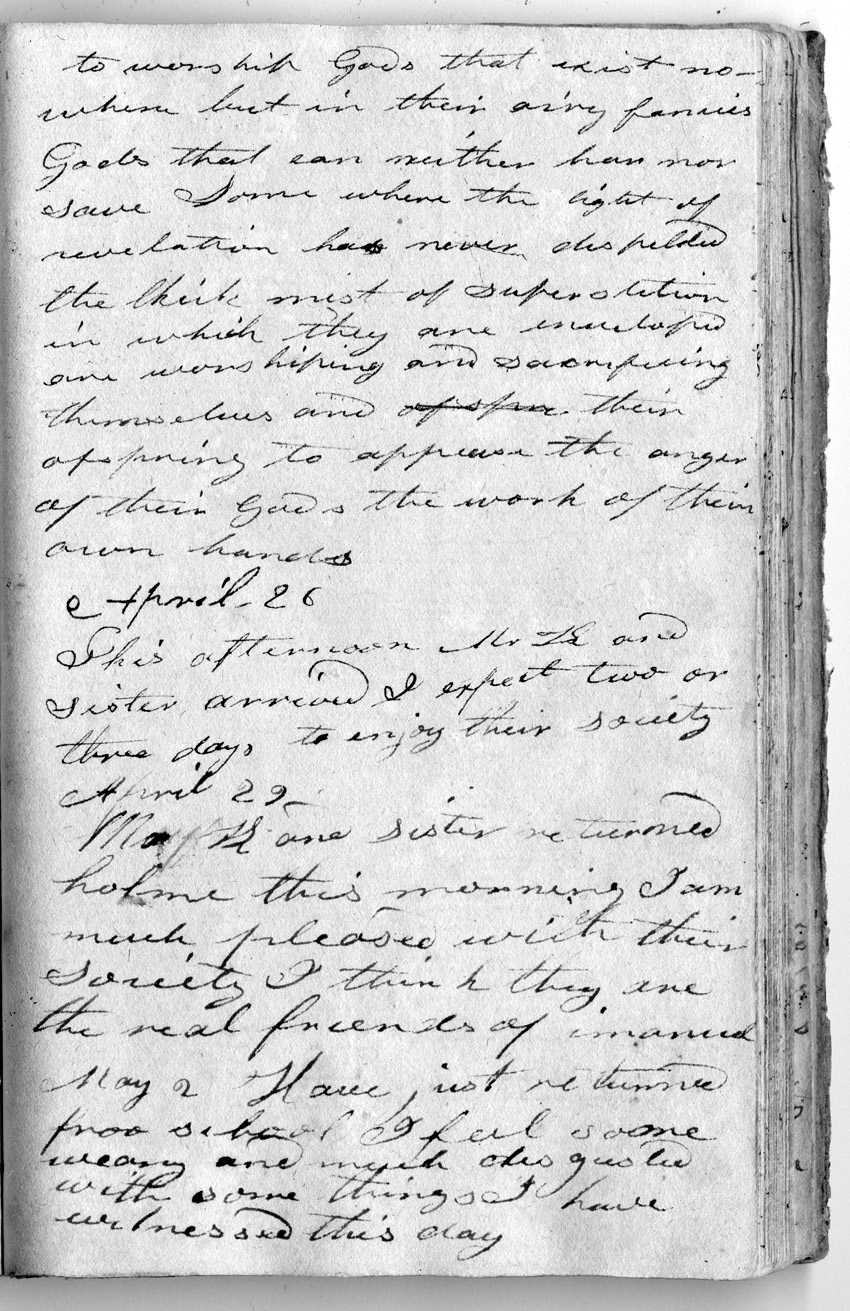 to worship Gods that exist no-
where but in their airy fancies
Gods that can neither hear nor
save Some where the light of
revelation has never dispelled
the thick mist of superstition
in which they are enveloped
are worshiping and sacrificing
themselves and of spri their
ofspring to appease the anger
of their Gods the work of their
own hands
April 26
This afternoon Mr K and
sister arrived I expect two or
three days to enjoy their society
April 29
K and sister returned
holme this morning I am
much pleased with their
society I think they are
the real friends of imanuel
May 2 Have just returned
froo school I feel some
weary and much disgusted
with some things I have
witnessed this day